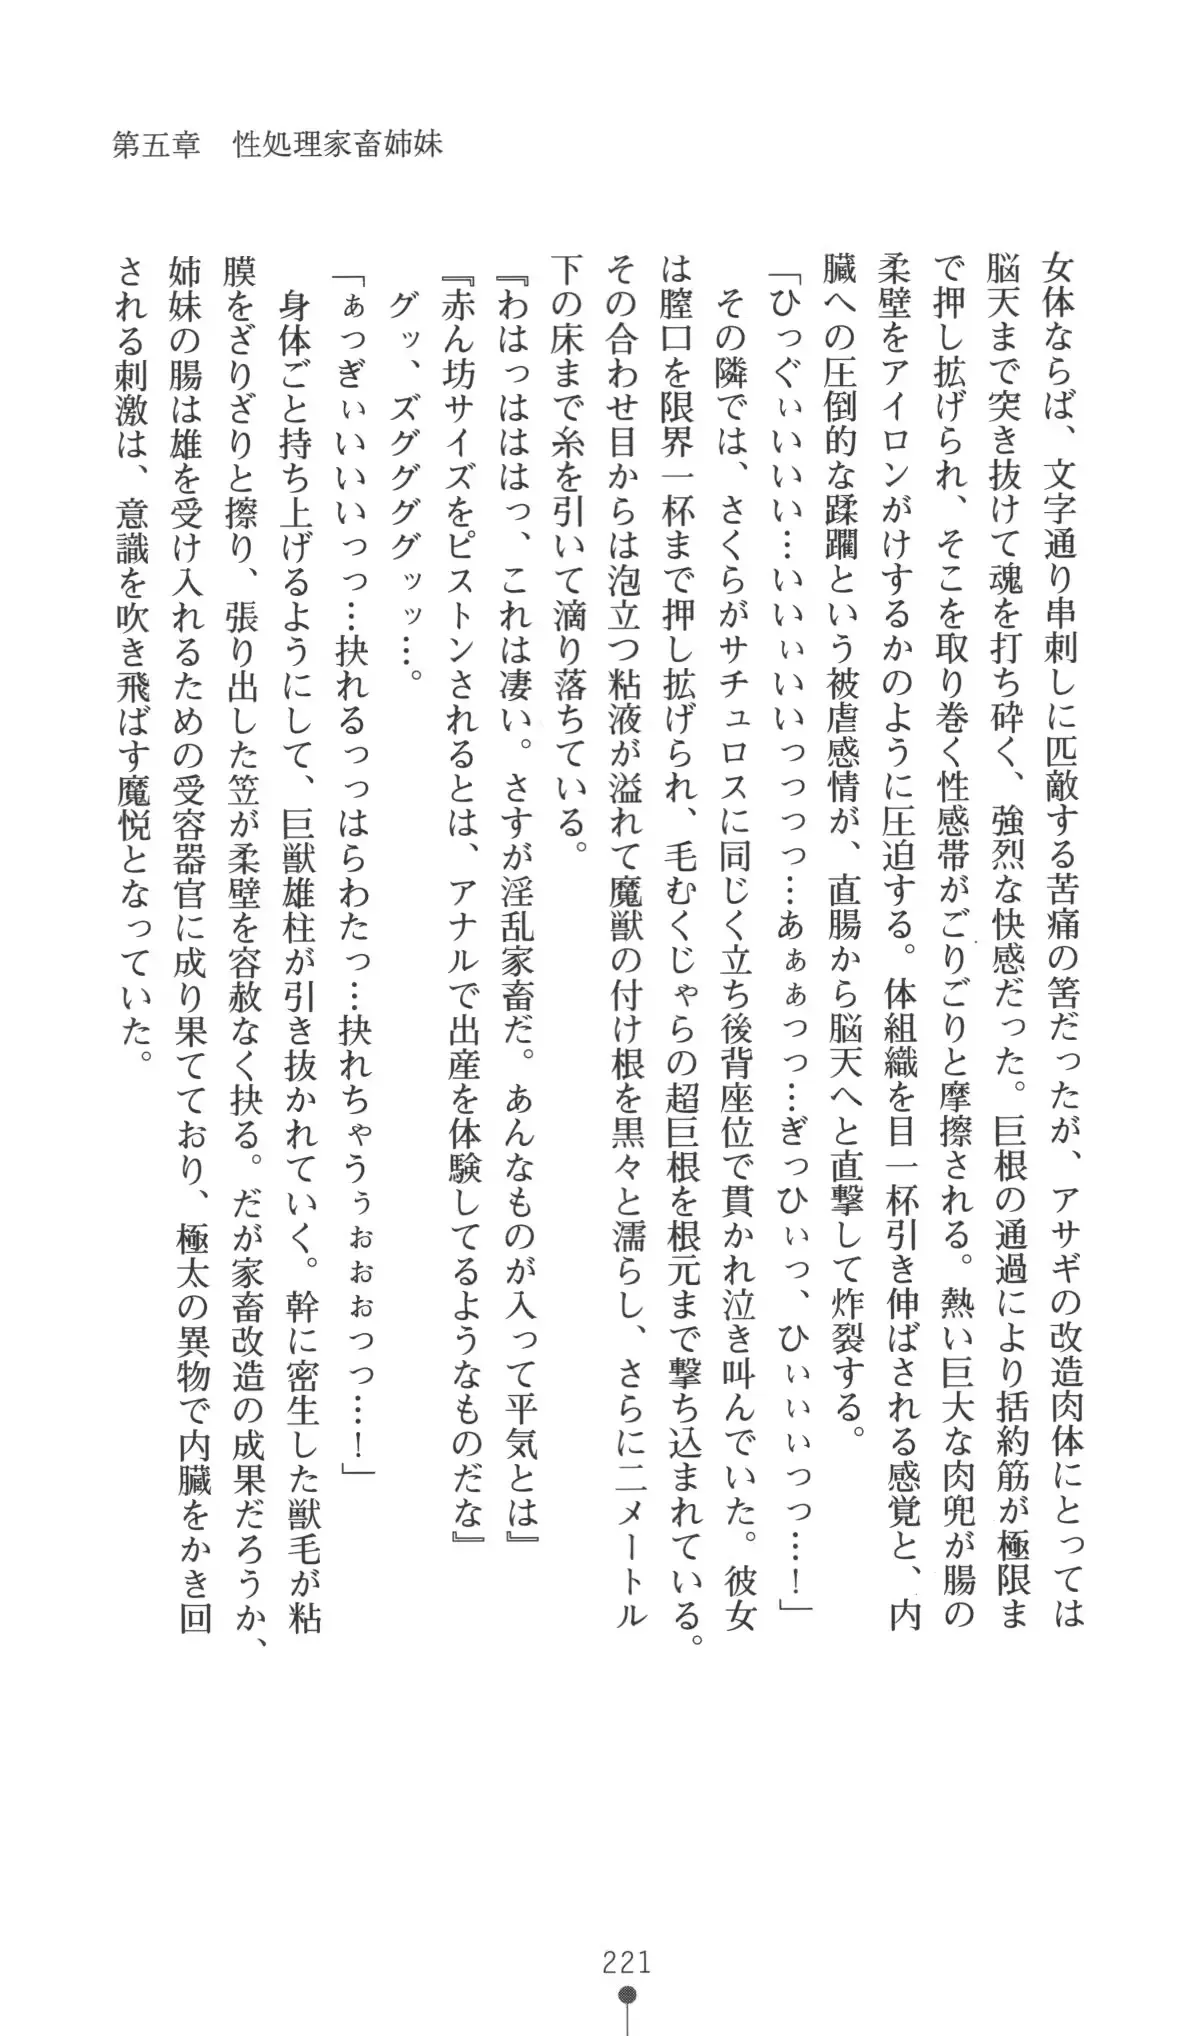 第五章　性処理家畜姉妹
女体ならば、文字通り串刺しに匹敵する苦痛の筈だったが、アサギの改造肉体にとっては
脳天まで突き抜けて魂を打ち砕く、強烈な快感だった。巨根の通過により括約筋が極限ま
で押し拡げられ、そこを取り巻く性感帯がごりごりと摩擦される。熱い巨大な肉兜が腸の
柔壁をアイロンがけするかのように圧迫する。体組織を目一杯引き伸ばされる感覚と、内
臓への圧倒的な蹂躙という被虐感情が、直腸から脳天へと直撃して炸裂する。
「ひっぐぃいいいい…いいぃいいっっっっ…あぁぁっっ…ぎっひぃっ、ひぃぃぃっっ…！」
　その隣では、さくらがサチュロスに同じく立ち後背座位で貫かれ泣き叫んでいた。彼女
は膣口を限界一杯まで押し拡げられ、毛むくじゃらの超巨根を根元まで撃ち込まれている。
その合わせ目からは泡立つ粘液が溢れて魔獣の付け根を黒々と濡らし、さらに二メートル
下の床まで糸を引いて滴り落ちている。
『わはっっはははっ、これは凄い。さすが淫乱家畜だ。あんなものが入って平気とは』
『赤ん坊サイズをピストンされるとは、アナルで出産を体験してるようなものだな』
　グッ、ズググググッッ…。
「ぁっぎぃいいいっっ…抉れるっっはらわたっ…抉れちゃうぅぉぉぉっっ…！」
　身体ごと持ち上げるようにして、巨獣雄柱が引き抜かれていく。幹に密生した獣毛が粘
膜をざりざりと擦り、張り出した笠が柔壁を容赦なく抉る。だが家畜改造の成果だろうか、
姉妹の腸は雄を受け入れるための受容器官に成り果てており、極太の異物で内臓をかき回
される刺激は、意識を吹き飛ばす魔悦となっていた。
221